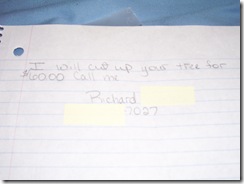 I will cut up your tree for
$6000 Call me
Richard
7027